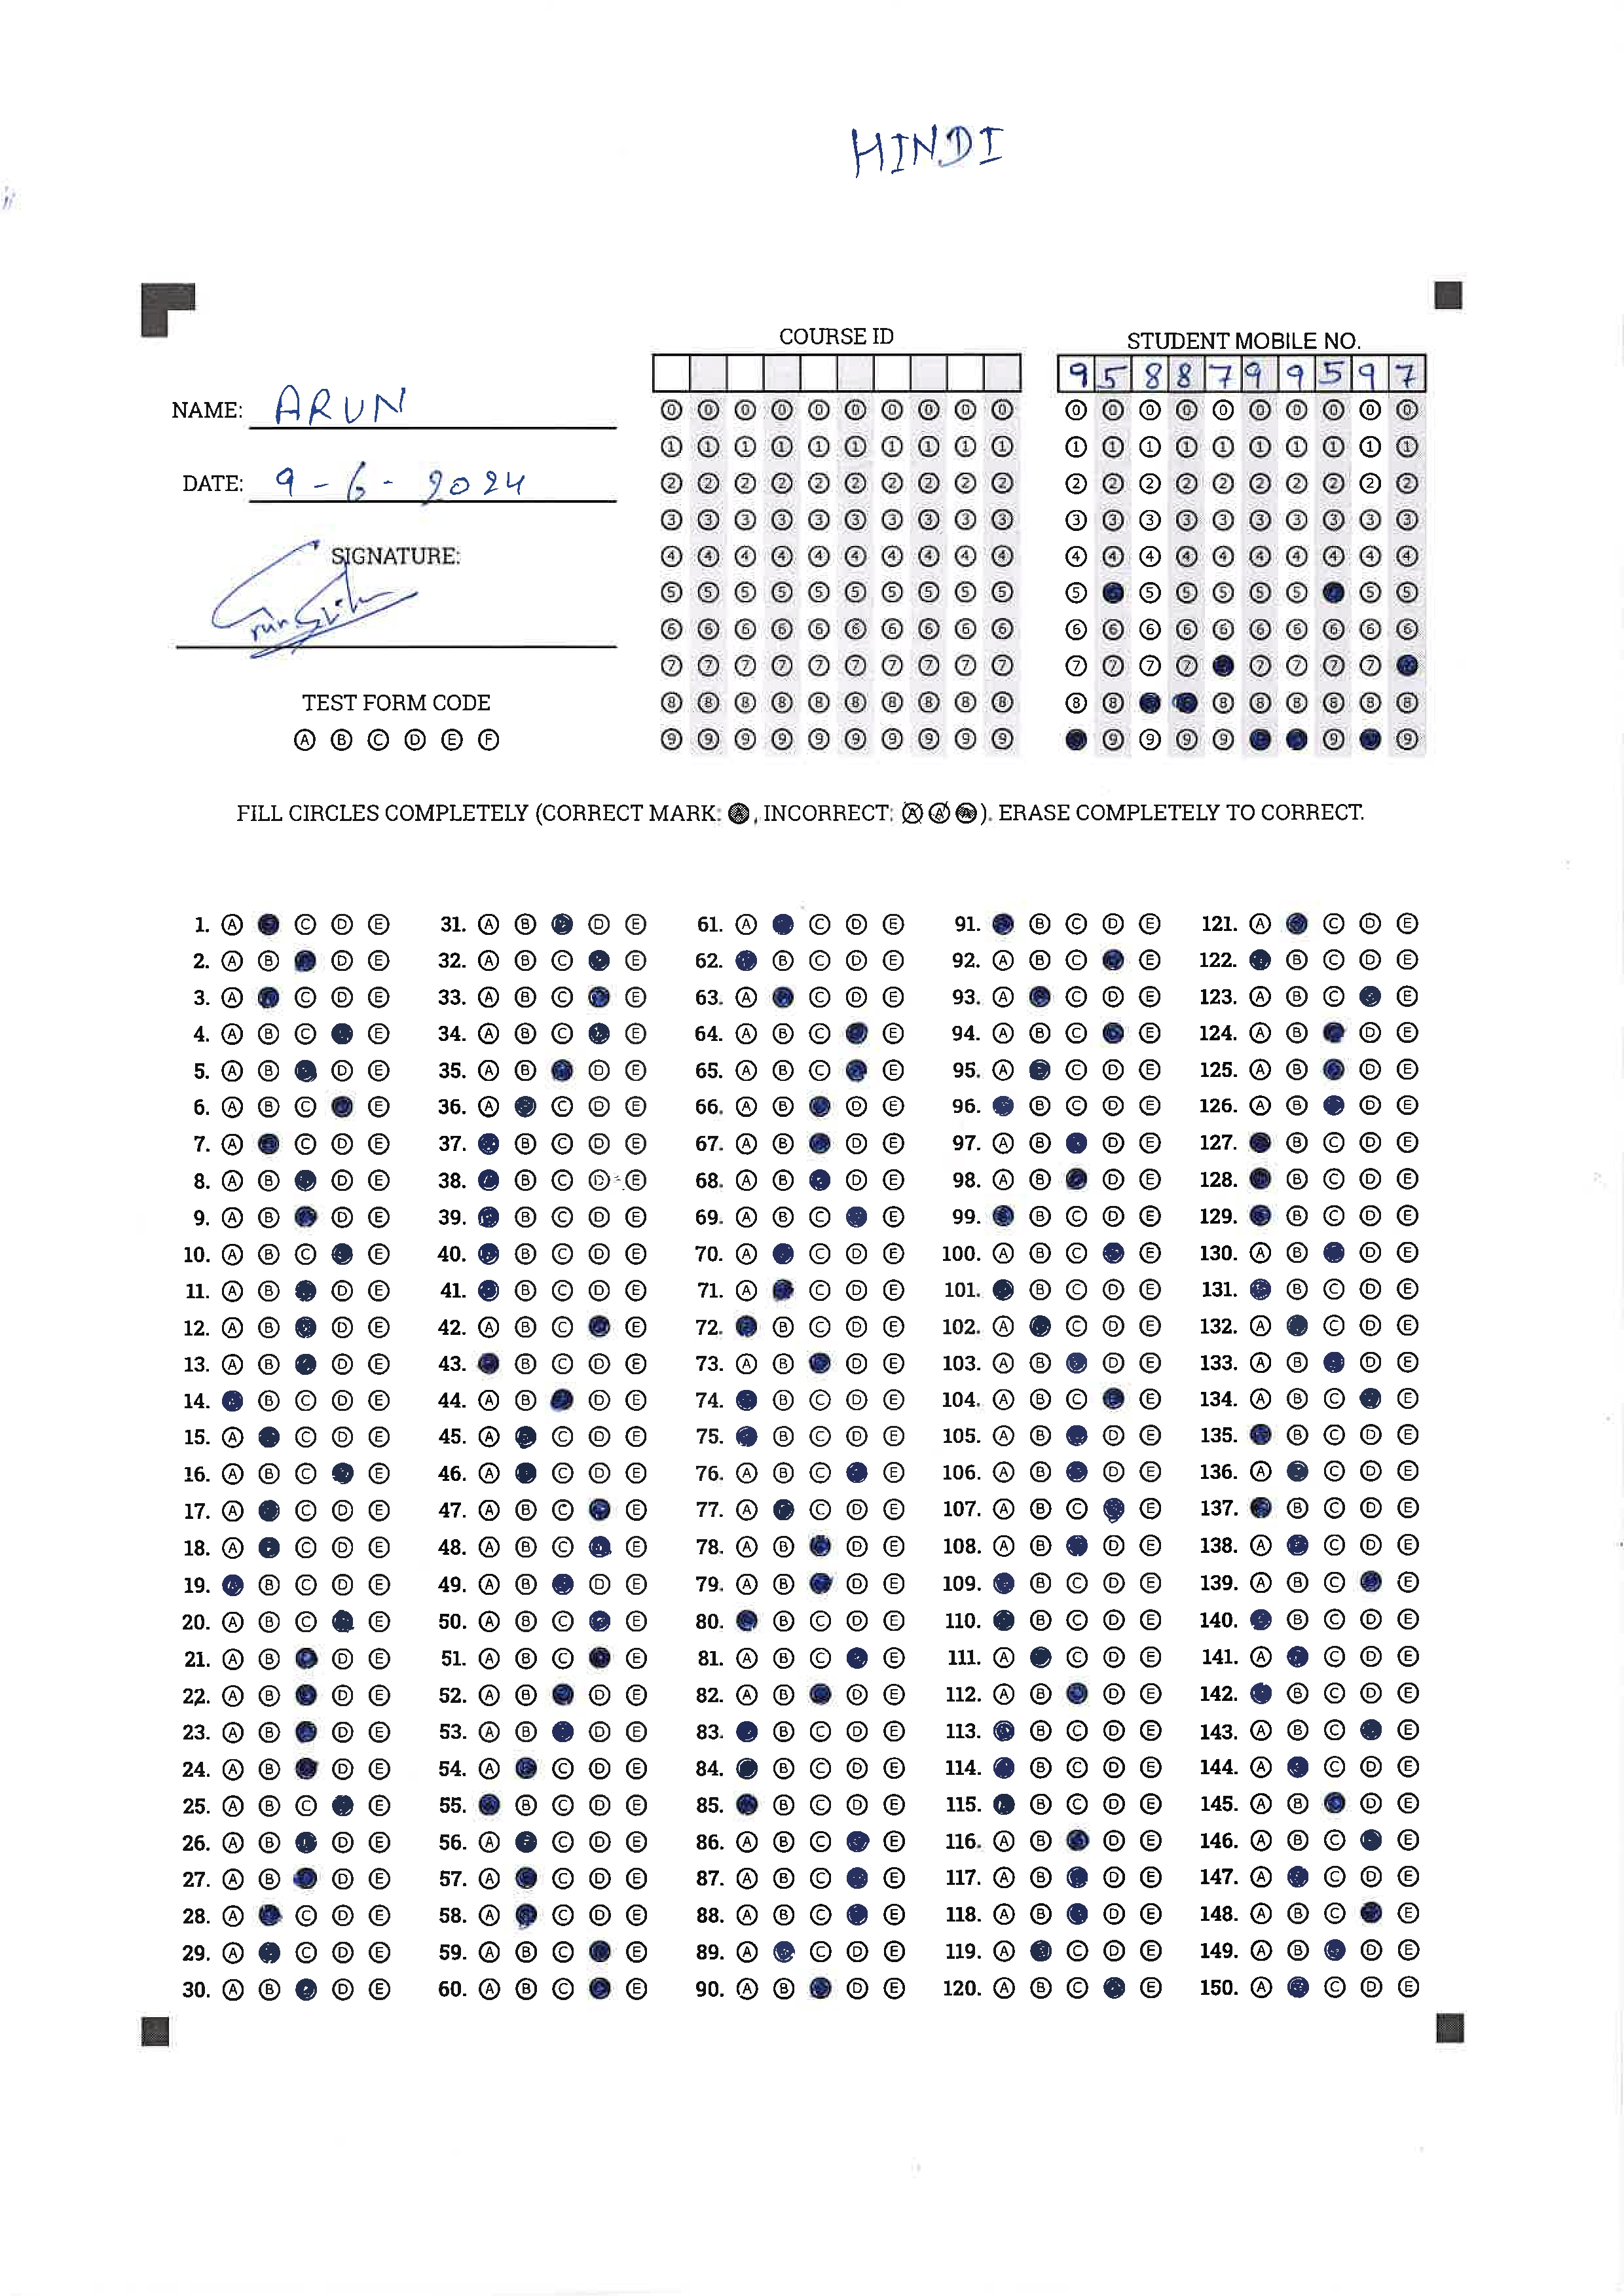 HINDI
COURSE ID
STUDENT MOBILE NO.
9 5 8 8 7 9 9 5 9 7
NAME: ARUN
DATE: 9 - 6 - 2024
SIGNATURE:
TEST FORM CODE
A B C D E F
0 0 0 0 0 0 0 0 0 0
1 1 1 1 1 1 1 1 1 1
2 2 2 2 2 2 2 2 2 2
3 3 3 3 3 3 3 3 3 3
4 4 4 4 4 4 4 4 4 4
5 5 5 5 5 5 5 5 5 5
6 6 6 6 6 6 6 6 6 6
7 7 7 7 7 7 7 7 7 7
8 8 8 8 8 8 8 8 8 8
9 9 9 9 9 9 9 9 9 9
0 0 0 0 0 0 0 0 0 0
1 1 1 1 1 1 1 1 1 1
2 2 2 2 2 2 2 2 2 2
3 3 3 3 3 3 3 3 3 3
4 4 4 4 4 4 4 4 4 4
5 5 5 5 5 5 5 5
6 6 6 6 6 6 6 6 6 6
7 7 7 7 7 7 7 7
8 8 8 8 8 8 8 8
9 9 9 9 9 9
FILL CIRCLES COMPLETELY (CORRECT MARK: , INCORRECT: A A A). ERASE COMPLETELY TO CORRECT.
1. A C D E
2. A B D E
3. A C D E
4. A B C E
5. A B D E
6. A B C E
7. A C D E
8. A B D E
9. A B D E
10. A B C E
11. A B D E
12. A B D E
13. A B D E
14. B C D E
15. A C D E
16. A B C E
17. A C D E
18. A C D E
19. B C D E
20. A B C E
21. A B D E
22. A B D E
23. A B D E
24. A B D E
25. A B C E
26. A B D E
27. A B D E
28. A C D E
29. A C D E
30. A B D E
31. A B D E
32. A B C E
33. A B C E
34. A B C E
35. A B D E
36. A C D E
37. B C D E
38. B C D E
39. B C D E
40. B C D E
41. B C D E
42. A B C E
43. B C D E
44. A B D E
45. A C D E
46. A C D E
47. A B C E
48. A B C E
49. A B D E
50. A B C E
51. A B C E
52. A B D E
53. A B D E
54. A C D E
55. B C D E
56. A C D E
57. A C D E
58. A C D E
59. A B C E
60. A B C E
61. A C D E
62. B C D E
63. A C D E
64. A B C E
65. A B C E
66. A B D E
67. A B D E
68. A B D E
69. A B C E
70. A C D E
71. A C D E
72. B C D E
73. A B D E
74. B C D E
75. B C D E
76. A B C E
77. A C D E
78. A B D E
79. A B D E
80. B C D E
81. A B C E
82. A B D E
83. B C D E
84. B C D E
85. B C D E
86. A B C E
87. A B C E
88. A B C E
89. A C D E
90. A B D E
91. B C D E
92. A B C E
93. A C D E
94. A B C E
95. A C D E
96. B C D E
97. A B D E
98. A B D E
99. B C D E
100. A B C E
101. B C D E
102. A C D E
103. A B D E
104. A B C E
105. A B D E
106. A B D E
107. A B C E
108. A B D E
109. B C D E
110. B C D E
111. A C D E
112. A B D E
113. B C D E
114. B C D E
115. B C D E
116. A B D E
117. A B D E
118. A B D E
119. A C D E
120. A B C E
121. A C D E
122. B C D E
123. A B C E
124. A B D E
125. A B D E
126. A B D E
127. B C D E
128. B C D E
129. B C D E
130. A B D E
131. B C D E
132. A C D E
133. A B D E
134. A B C E
135. B C D E
136. A C D E
137. B C D E
138. A C D E
139. A B C E
140. B C D E
141. A C D E
142. B C D E
143. A B C E
144. A C D E
145. A B D E
146. A B C E
147. A C D E
148. A B C E
149. A B D E
150. A C D E